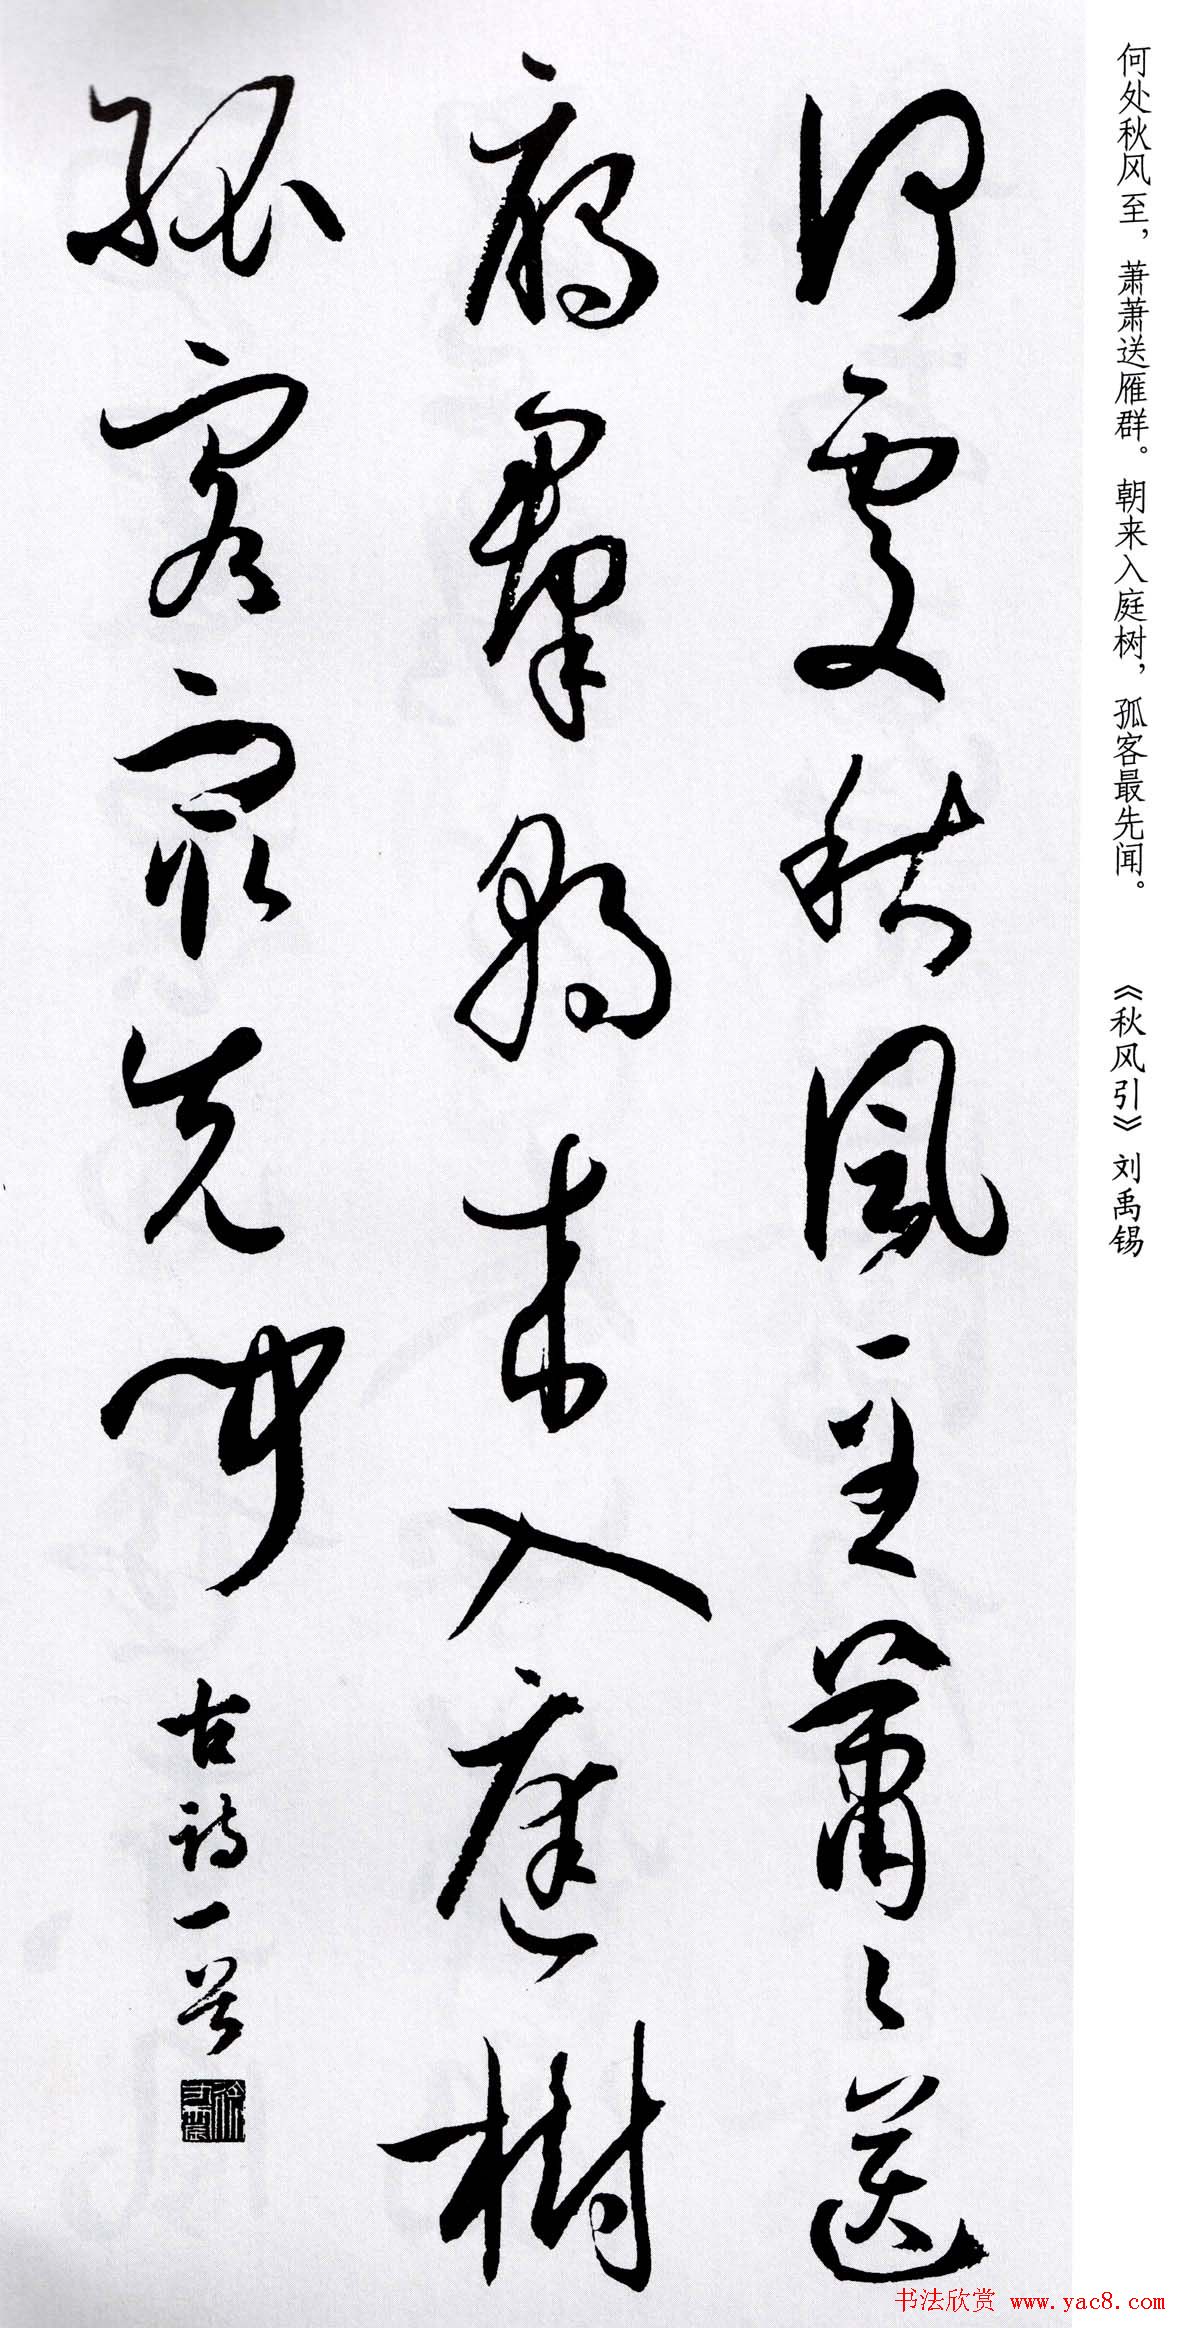 何处秋风至，萧萧送雁群。朝来入庭树，孤客最先闻。 《秋风引》刘禹锡
何處秋風至蕭々送
雁群朝来入庭樹
孤客最先聞 古詩一首
书法欣赏 www.yac8.com